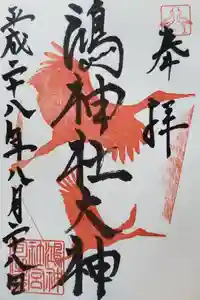 奉拝
鴻神社大神
平成二十八年八月二八日
鴻神
社宮